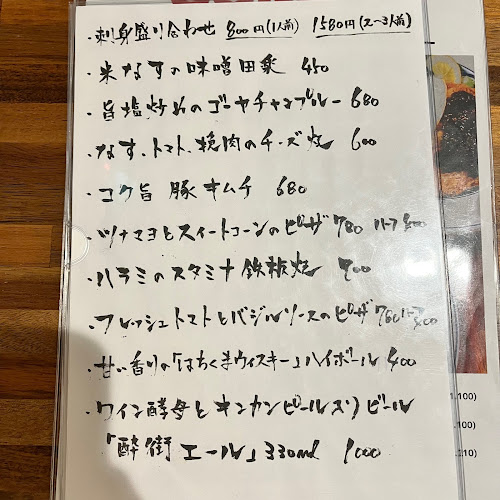 ・刺身盛り合わせ 800円(1人前) 1580円(2〜3人前)
・米なすの味噌田楽 450
・旨塩炒めのゴーヤチャンプルー 680
・なす、トマト、挽肉のチーズ焼 600
・コク旨 豚キムチ 680
・ツナマヨとスイートコーンのピザ 780 ハーフ 400
・ハラミのスタミナ鉄板焼 700
・フレッシュトマトとバジルソースのピザ 760 ハーフ 400
・甘い香りの「はちくまウィスキー」ハイボール 400
・ワイン酵母とキンカンピール入りビール
「酔街エール」330ml 1000
.100)
.210)